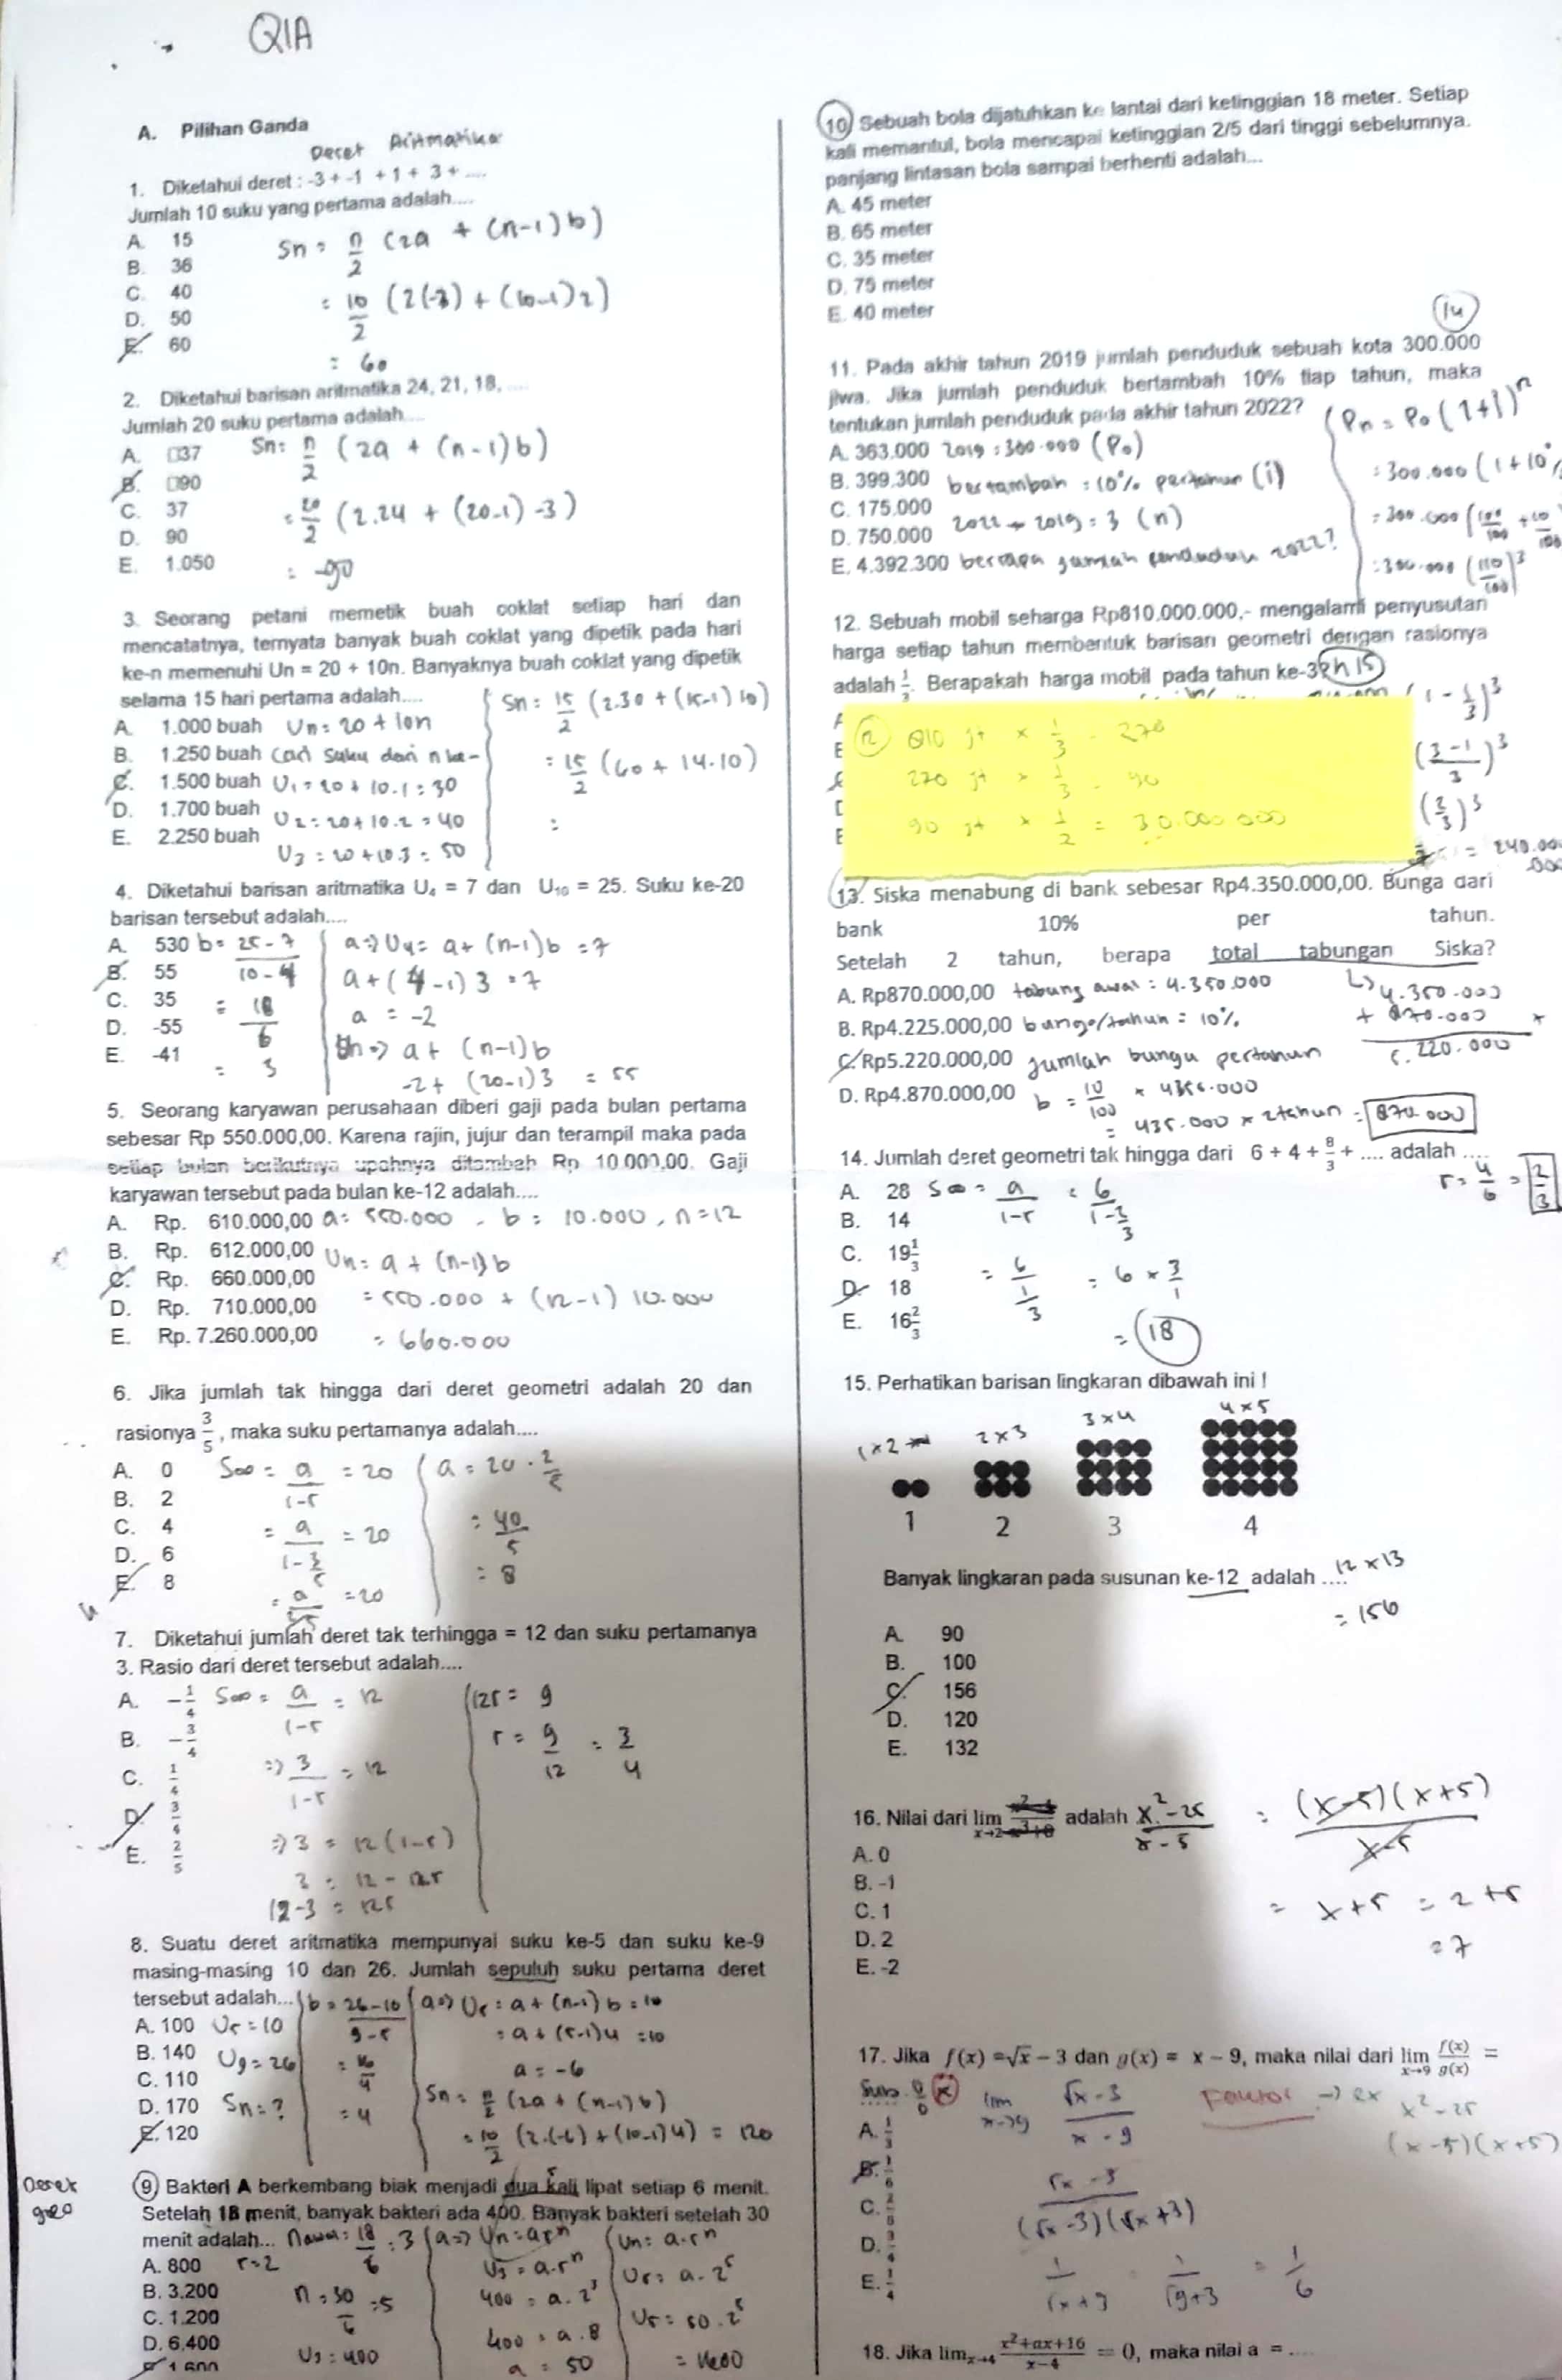 QIA
A. Pilihan Ganda
Deret Aritmatika
1. Diketahui deret : -3 + -1 + 1 + 3 + ....
Jumlah 10 suku yang pertama adalah....
A. 15
B. 36
C. 40
D. 50
E. 60
Sn = n/2 (2a + (n-1) b)
= 10/2 (2(-3) + (10-1) 2)
= 60
2. Diketahui barisan aritmatika 24, 21, 18, ....
Jumlah 20 suku pertama adalah....
A. □37
B. □90
C. 37
D. 90
E. 1.050
Sn = n/2 (2a + (n-1) b)
= 20/2 (2.24 + (20-1) -3)
= -90
3. Seorang petani memetik buah coklat setiap hari dan
mencatatnya, ternyata banyak buah coklat yang dipetik pada hari
ke-n memenuhi Un = 20 + 10n. Banyaknya buah coklat yang dipetik
selama 15 hari pertama adalah....
A. 1.000 buah Un = 20 + 10n
B. 1.250 buah cari suku dari n ke-
C. 1.500 buah U1 = 20 + 10.1 = 30
D. 1.700 buah U2 = 20 + 10.2 = 40
E. 2.250 buah
U3 = 20 + 10.3 = 50
Sn = 15/2 (2.30 + (15-1) 10)
= 15/2 (60 + 14.10)
=
4. Diketahui barisan aritmatika U4 = 7 dan U10 = 25. Suku ke-20
barisan tersebut adalah....
A. 530
B. 55
C. 35
D. -55
E. -41
b = 25 - 7 / 10 - 4
= 18/6
= 3
a => U4 = a + (n-1) b = 7
a + (4-1) 3 = 7
a = -2
Un => a + (n-1) b
-2 + (20-1) 3 = 55
5. Seorang karyawan perusahaan diberi gaji pada bulan pertama
sebesar Rp 550.000,00. Karena rajin, jujur dan terampil maka pada
setiap bulan berikutnya upahnya ditambah Rp 10.000,00. Gaji
karyawan tersebut pada bulan ke-12 adalah....
A. Rp. 610.000,00 a = 550.000 , b = 10.000 , n = 12
B. Rp. 612.000,00 Un = a + (n-1) b
C. Rp. 660.000,00
D. Rp. 710.000,00 = 550.000 + (12-1) 10.000
E. Rp. 7.260.000,00 = 660.000
6. Jika jumlah tak hingga dari deret geometri adalah 20 dan
rasionya 3/5, maka suku pertamanya adalah....
A. 0
B. 2
C. 4
D. 6
E. 8
S∞ = a/1-r = 20
= a/1-3/5 = 20
= a/2/5 = 20
a = 20 . 2/5
= 40/5
= 8
7. Diketahui jumlah deret tak terhingga = 12 dan suku pertamanya
3. Rasio dari deret tersebut adalah....
A. -1/4
B. -3/4
C. 1/4
D. 3/4
E. 2/5
S∞ = a/1-r = 12
=> 3/1-r = 12
=> 3 = 12 (1-r)
3 = 12 - 12r
12-3 = 12r
12r = 9
r = 9/12 = 3/4
8. Suatu deret aritmatika mempunyai suku ke-5 dan suku ke-9
masing-masing 10 dan 26. Jumlah sepuluh suku pertama deret
tersebut adalah...
A. 100 U5 = 10
B. 140 U9 = 26
C. 110
D. 170 Sn = ?
E. 120
b = 26-10 / 9-5
= 16/4
= 4
a => U5 = a + (n-1) b = 10
= a + (5-1) 4 = 10
a = -6
Sn = n/2 (2a + (n-1) b)
= 10/2 (2.(-6) + (10-1) 4) = 120
Deret geo
9. Bakteri A berkembang biak menjadi dua kali lipat setiap 6 menit.
Setelah 18 menit, banyak bakteri ada 400. Banyak bakteri setelah 30
menit adalah... n awal = 18/6 = 3
A. 800 r = 2
B. 3.200
C. 1.200
D. 6.400
E. 1.600
n = 30/6 = 5
U3 = 400
a => Un = ar^n
U3 = a.r^n
400 = a.2^3
400 = a.8
a = 50
Un = a.r^n
U5 = a.2^5
U5 = 50.2^5
= 1600
10. Sebuah bola dijatuhkan ke lantai dari ketinggian 18 meter. Setiap
kali memantul, bola mencapai ketinggian 2/5 dari tinggi sebelumnya.
panjang lintasan bola sampai berhenti adalah...
A. 45 meter
B. 65 meter
C. 35 meter
D. 75 meter
E. 40 meter
14
11. Pada akhir tahun 2019 jumlah penduduk sebuah kota 300.000
jiwa. Jika jumlah penduduk bertambah 10% tiap tahun, maka
tentukan jumlah penduduk pada akhir tahun 2022?
A. 363.000 2019 = 300.000 (P0)
B. 399.300 bertambah = 10% pertahun (i)
C. 175.000
D. 750.000 2022 → 2019 = 3 (n)
E. 4.392.300 berapa jumlah penduduk 2022?
Pn = P0 (1+i)^n
= 300.000 (1 + 10%
= 300.000 (100/100 + 10/100
= 300.000 (110/100)^3
12. Sebuah mobil seharga Rp810.000.000,- mengalami penyusutan
harga setiap tahun membentuk barisan geometri dengan rasionya
adalah 1/3. Berapakah harga mobil pada tahun ke-3?
12 810 jt × 1/3 = 270
270 jt × 1/3 = 90
90 jt × 1/2 = 30.000.000
(1 - 1/3)^3
(3-1/3)^3
(2/3)^3
= 240.000.000
13. Siska menabung di bank sebesar Rp4.350.000,00. Bunga dari
bank 10% per tahun.
Setelah 2 tahun, berapa total tabungan Siska?
A. Rp870.000,00 tabung awal = 4.350.000
B. Rp4.225.000,00 bunga/tahun = 10%
C. Rp5.220.000,00 jumlah bunga pertahun
D. Rp4.870.000,00 b = 10/100 × 4350.000
= 435.000 × 2 tahun = 870.000
4.350.000
870.000 +
5.220.000
14. Jumlah deret geometri tak hingga dari 6 + 4 + 8/3 + .... adalah ....
A. 28
B. 14
C. 19 1/3
D. 18
E. 16 2/3
S∞ = a/1-r = 6/1-2/3
= 6/1/3 = 6 × 3/1
= 18
r = 4/6 = 2/3
15. Perhatikan barisan lingkaran dibawah ini !
1×2 2×3 3×4 4×5
1 2 3 4
Banyak lingkaran pada susunan ke-12 adalah .... 12 × 13
= 156
A. 90
B. 100
C. 156
D. 120
E. 132
16. Nilai dari lim x→2 adalah x²-25 / x-5 = (x-5)(x+5) / x-5
A. 0
B. -1
C. 1
D. 2
E. -2
= x+5 = 2+5
= 7
17. Jika f(x) = √x - 3 dan g(x) = x - 9, maka nilai dari lim x→9 f(x)/g(x) =
Subs. 0/0
lim x→9 √x-3 / x-9
Faktor → ex x²-25
(x-5)(x+5)
A. 1/3
B. 1/6
C.
D.
E. 1/4
√x-3 / (√x-3)(√x+3)
1/√x+3 = 1/√9+3 = 1/6
18. Jika lim x→4 x²+ax+16 / x-4 = 0, maka nilai a = ....